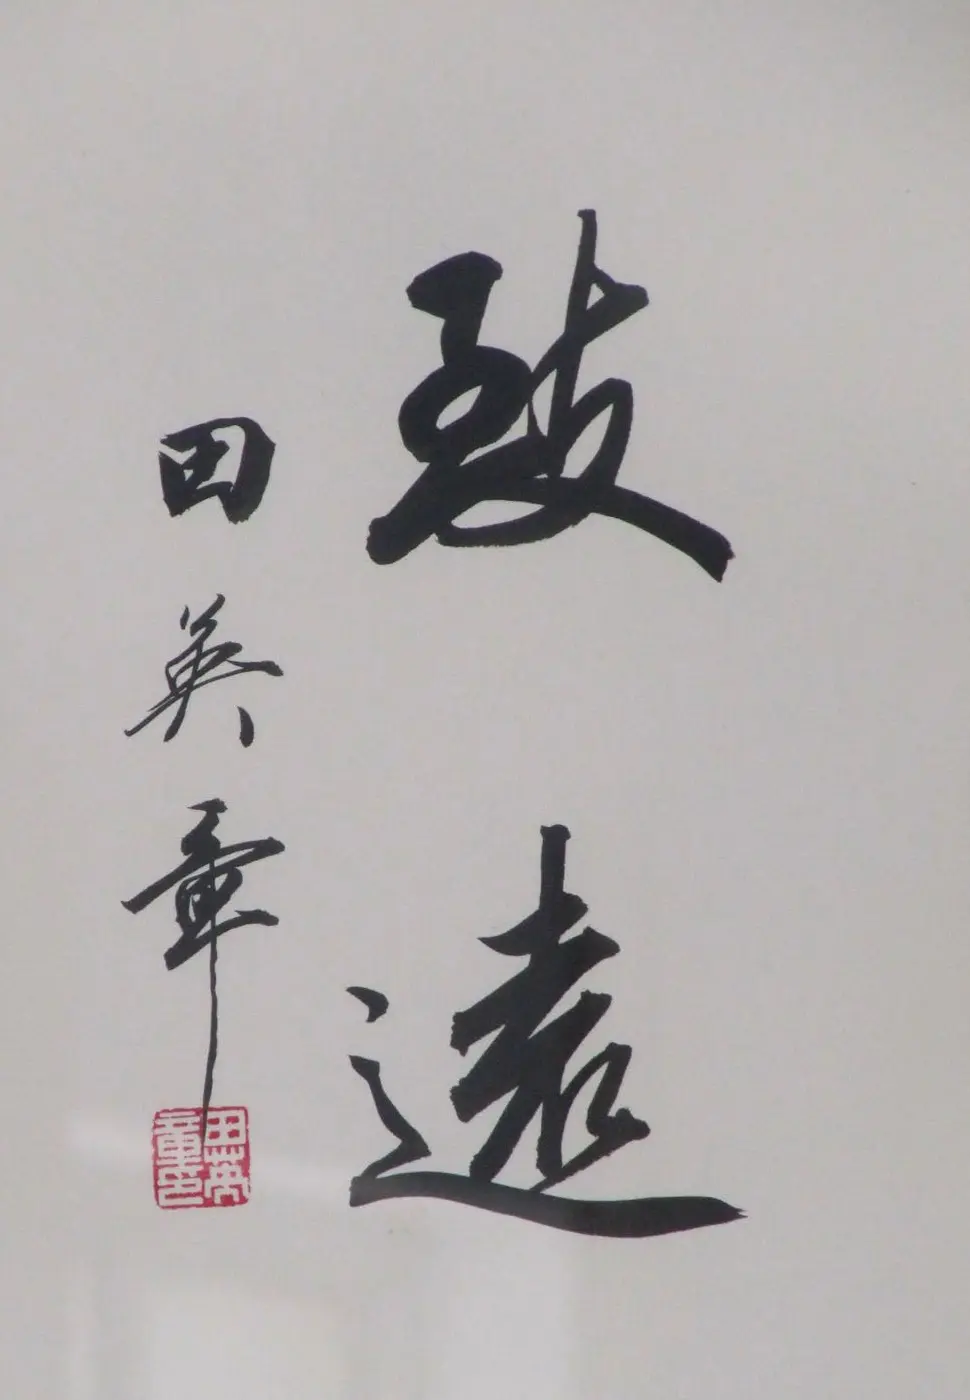 致遠
田英章
田英章印